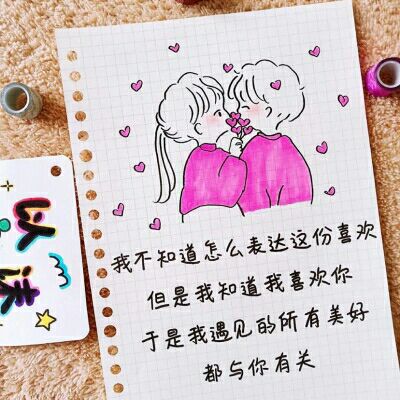 我不知道怎么表达这份喜欢
但是我知道我喜欢你
于是我遇见的所有美好
都与你有关
以